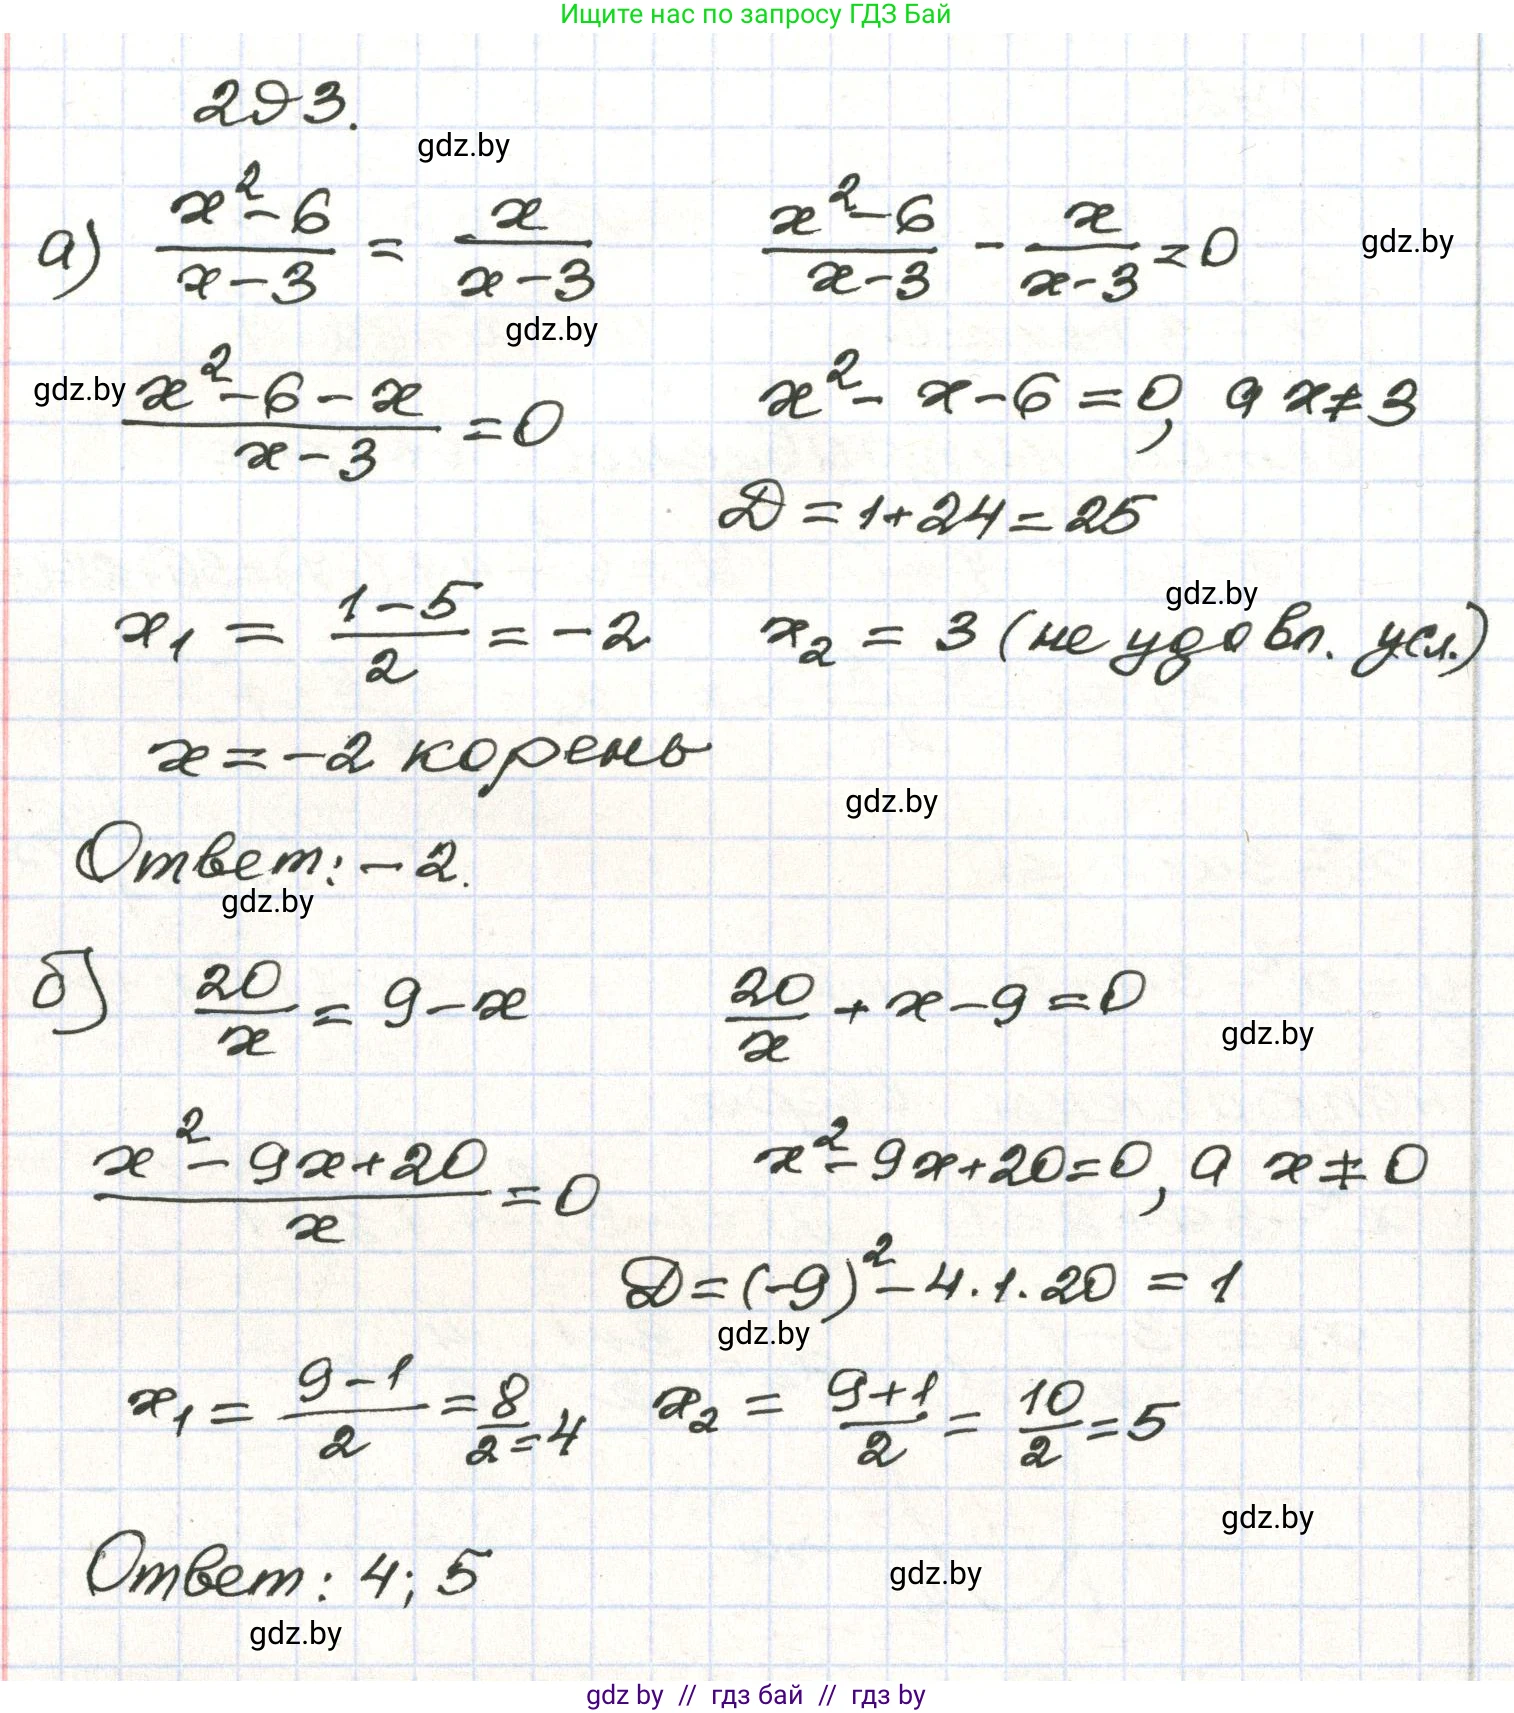 Ищите нас по запросу ГДЗ Бай
293.
gdz.by
а) (x² - 6)/(x - 3) = x/(x - 3)   (x² - 6)/(x - 3) - x/(x - 3) = 0
gdz.by
gdz.by
gdz.by
(x² - 6 - x)/(x - 3) = 0   x² - x - 6 = 0, а x ≠ 3
Д = 1 + 24 = 25
gdz.by
x₁ = (1 - 5)/2 = -2   x₂ = 3 (не удовл. усл.)
x = -2 корень
gdz.by
Ответ: -2.
gdz.by
б) 20/x = 9 - x   20/x + x - 9 = 0
gdz.by
(x² - 9x + 20)/x = 0   x² - 9x + 20 = 0, а x ≠ 0
Д = (-9)² - 4 · 1 · 20 = 1
gdz.by
x₁ = (9 - 1)/2 = 8/2 = 4   x₂ = (9 + 1)/2 = 10/2 = 5
gdz.by
Ответ: 4; 5
gdz.by
gdz.by
gdz by // гдз бай // гдз by